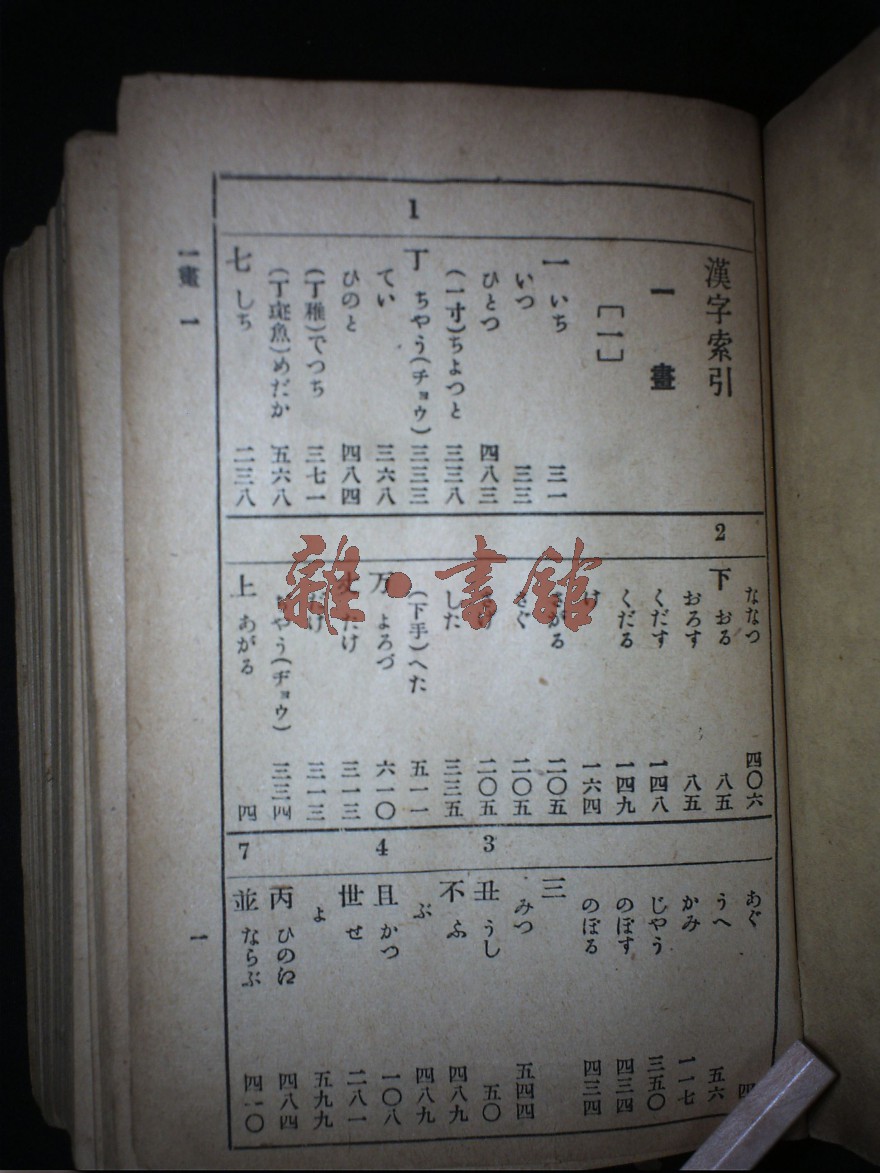 漢字索引
一畫
［一］
一 いち 三一
いつ 三三
ひとつ 四八三
（一寸）ちよつと 三三八
1
丁 ちやう（チョウ） 三三三
てい 三六八
ひのと 四八四
（丁稚）でつち 三七一
（丁斑魚）めだか 五六八
七 しち 二三八
ななつ 四〇六
2
下 おる 八五
おろす 八五
くだす 一四八
くだる 一四九
げ 一六四
さがる 二〇五
さぐ 二〇五
二〇五
した 三三五
（下手）へた 五一一
万 よろづ 六一〇
丈 たけ 三一三
だけ 三一三
ぢやう（ヂョウ） 三三四
上 あがる 四
あぐ 四
うへ 五六
かみ 一一七
じやう 三五〇
のぼす 四三四
のぼる 四三四
三 みつ 五四四
3
丑 うし 五〇
不 ふ 四八九
ぶ 四八九
4
且 かつ 一〇八
世 せ 二八一
よ 五九九
丙 ひのえ 四八四
7
並 ならぶ 四一〇
一畫 一
一
雜·書館